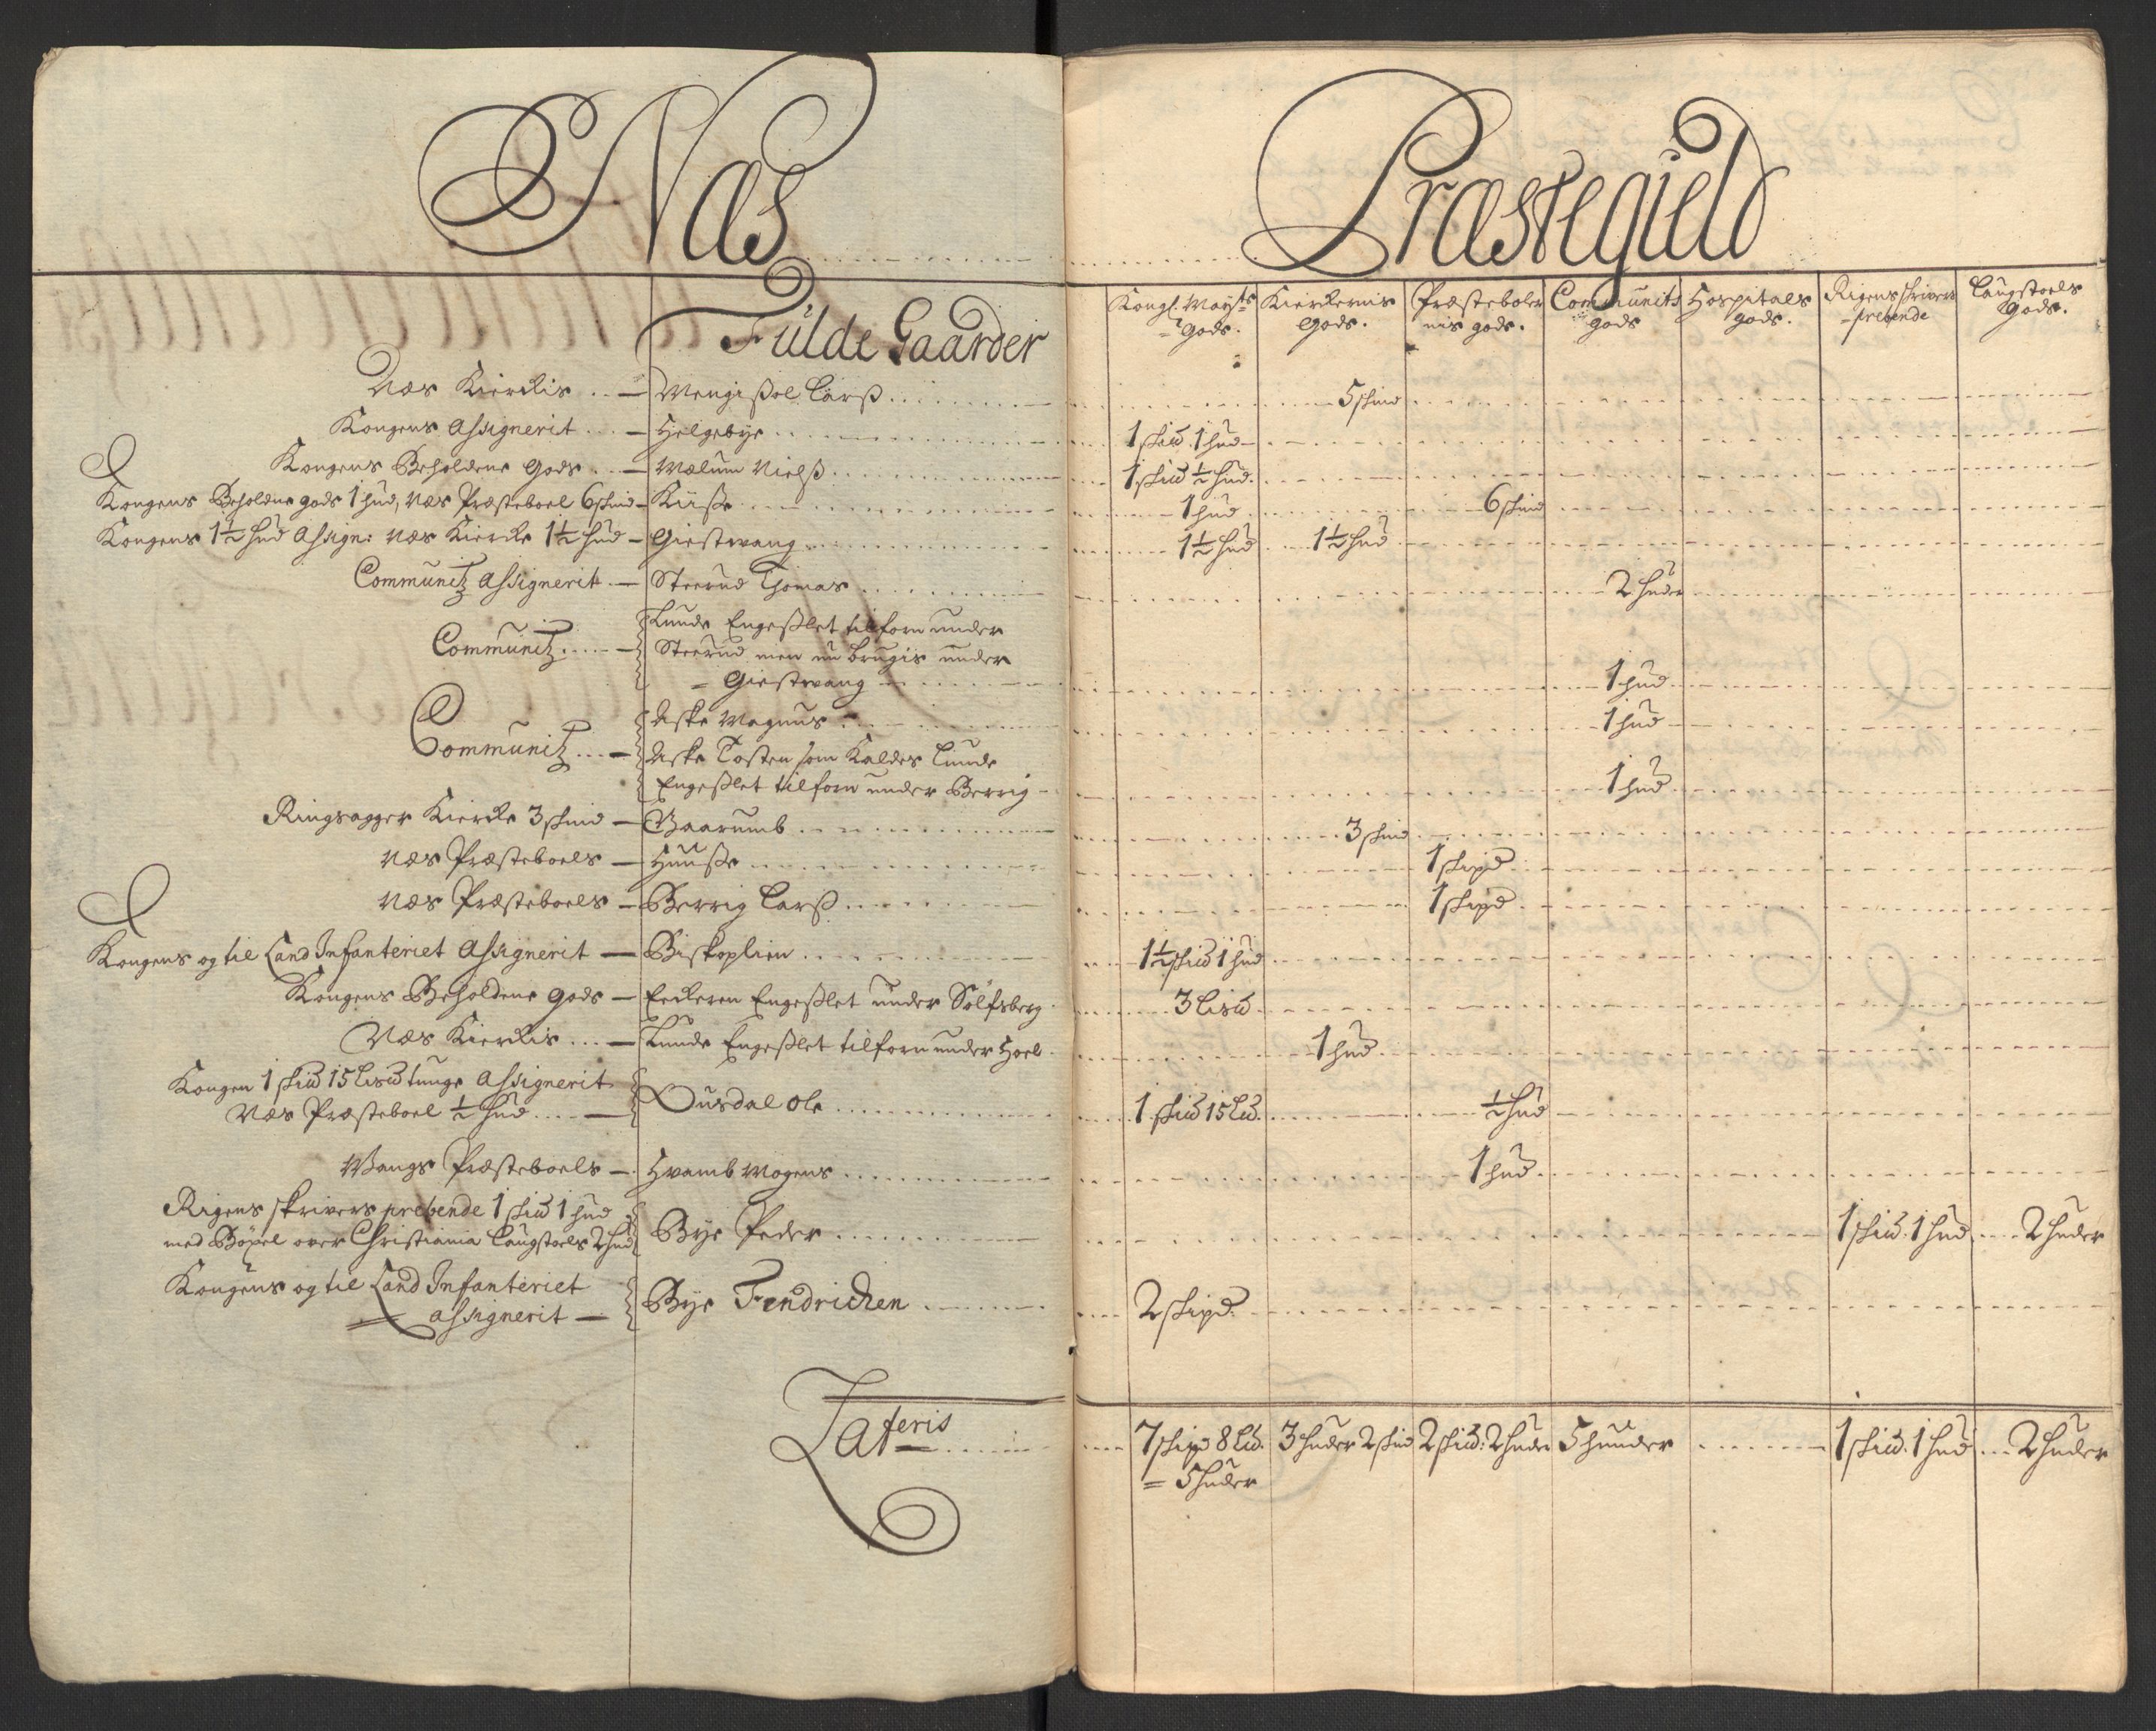 Næs Præstegield
Fulde Gaarder
Kongl: Mayts Gods. Kierkernis Gods. Præstebolernis gods. Communits gods Hospitals gods. Rigens skrivers prebende Laugstoels Gods.
Næs Kierkis Mengisßol Larß 5 skind
Kongens Assignerit Helgebye 1 skid 1 hud
Kongens Beholdene Gods Mælum Nielß 1 skid ½ hud
Kongens Beholdne gods 1 hud, Næs Præsteboel 6 skind Kiisße 1 hud 6 skind
Kongens 1½ hud Assign: Næs Kierke 1½ hud Giestwang 1½ hud 1½ hud
Communitz Assignerit Steerud Thomas 2 huder
Communitz Lunde Engeßlet tilforn under
Steerud men nu brugis under
Giestwang 1 hud
Communitz Aske Magnus 1 hud
Aske Tosten som Kaldes Lunde
Engeßlet tilforn under Berrig 1 hud
Ringsagger Kierke 3 skind Baarumb 3 skind
Næs Præsteboels Huusße 1 skipd
Næs Præsteboels Berrig Larß 1 skipd
Kongens og til Land Infanteriet Assignerit Biskoplien 1½ skid 1 hud
Kongens Beholdene Gods Eekeren Engeßlet under Sølfsberg 3 Lisd
Næs Kierkis Lunde Engeßlet tilforn under Hoel 1 hud
Kongen 1 skid 15 Lisd tunge Assignerit
Næs Præsteboel ½ hud Ousdal Ole 1 skid 15 Ld. ½ hud
Wangs Præsteboels Hvamb Mogens 1 hud
Rigens skrivers prebende 1 skid 1 hud
med Böxel over Christiania Laugstoels 2 hud Bye Peder 1 skid 1 hud 2 huder
Kongens og til Land Infanteriet
assignerit Bye Fendricken 2 skipd
Lateris 7 skipd 8 Ld. 3 huder 2 skind 2 skid: 2 huder 5 huuder 1 skid. 1 hud 2 huder
= 5 huder